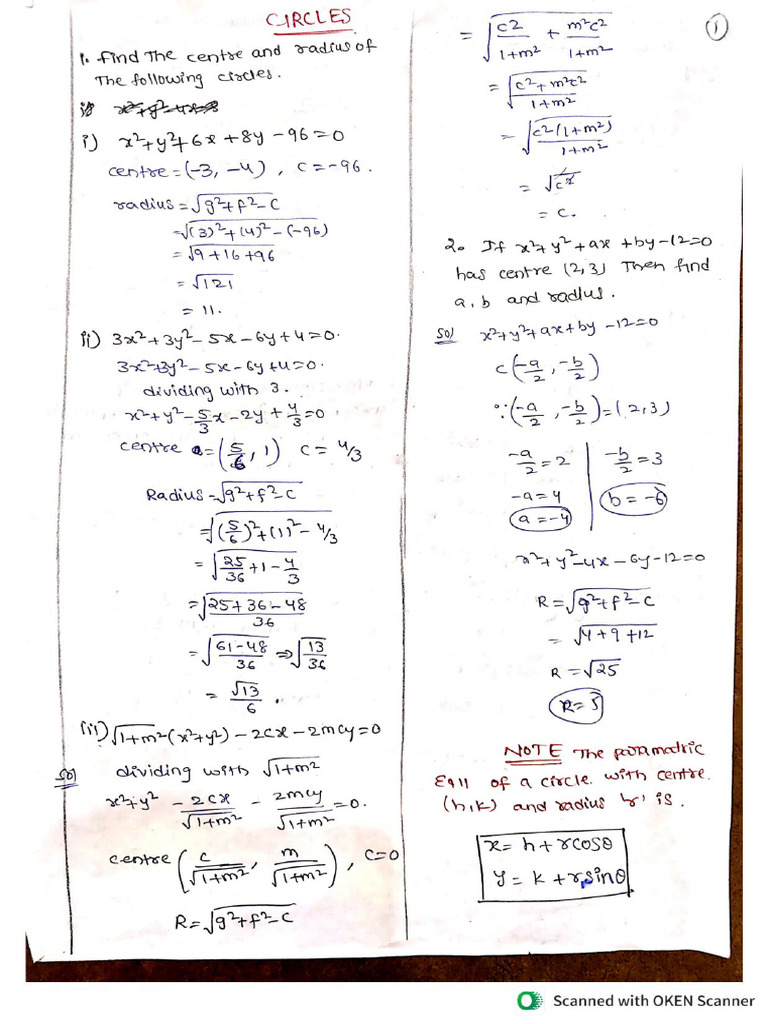 CIRCLES
1. Find The centre and radius of
The following circles.
i) x²+y²+6x+8y-96=0
centre=(-3, -4), c=-96.
radius=√g²+f²-c
=√(3)²+(4)²-(-96)
=√9+16+96
=√121
= 11.
ii) 3x²+3y²-5x-6y+4=0.
3x²+3y²-5x-6y+4=0.
dividing with 3.
x²+y²-5/3x-2y+4/3=0
centre =(5/6, 1) c = 4/3
Radius=√g²+f²-c
=√(5/6)²+(1)²-4/3
=√25/36+1-4/3
=√25+36-48/36
=√61-48/36 ⇒√13/36
= √13/6.
iii) √1+m²(x²+y²)-2cx-2mcy=0
Sol dividing with √1+m²
x²+y² - 2cx/√1+m² - 2mcy/√1+m²=0.
centre (c/√1+m², m/√1+m²), c=0
R=√g²+f²-c
1
= √c2/1+m² + m²c²/1+m²
= √c²+m²c²/1+m²
= √c²(1+m²)/1+m²
= √c²
= c.
2. If x²+y²+ax+by-12=0
has centre (2,3) Then find
a, b and radius.
Sol x²+y²+ax+by-12=0
c(-a/2, -b/2)
∵(-a/2, -b/2)=(2,3)
-a/2=2 | -b/2=3
-a=4 | b=-6
a=-4
x²+y²-4x-6y-12=0
R=√g²+f²-c
=√4+9+12
R=√25
R=5
NOTE The parametric
Eq11 of a circle with centre.
(h,k) and radius 'r' is.
x= h+rcosθ
y = k+rsinθ
Scanned with OKEN Scanner